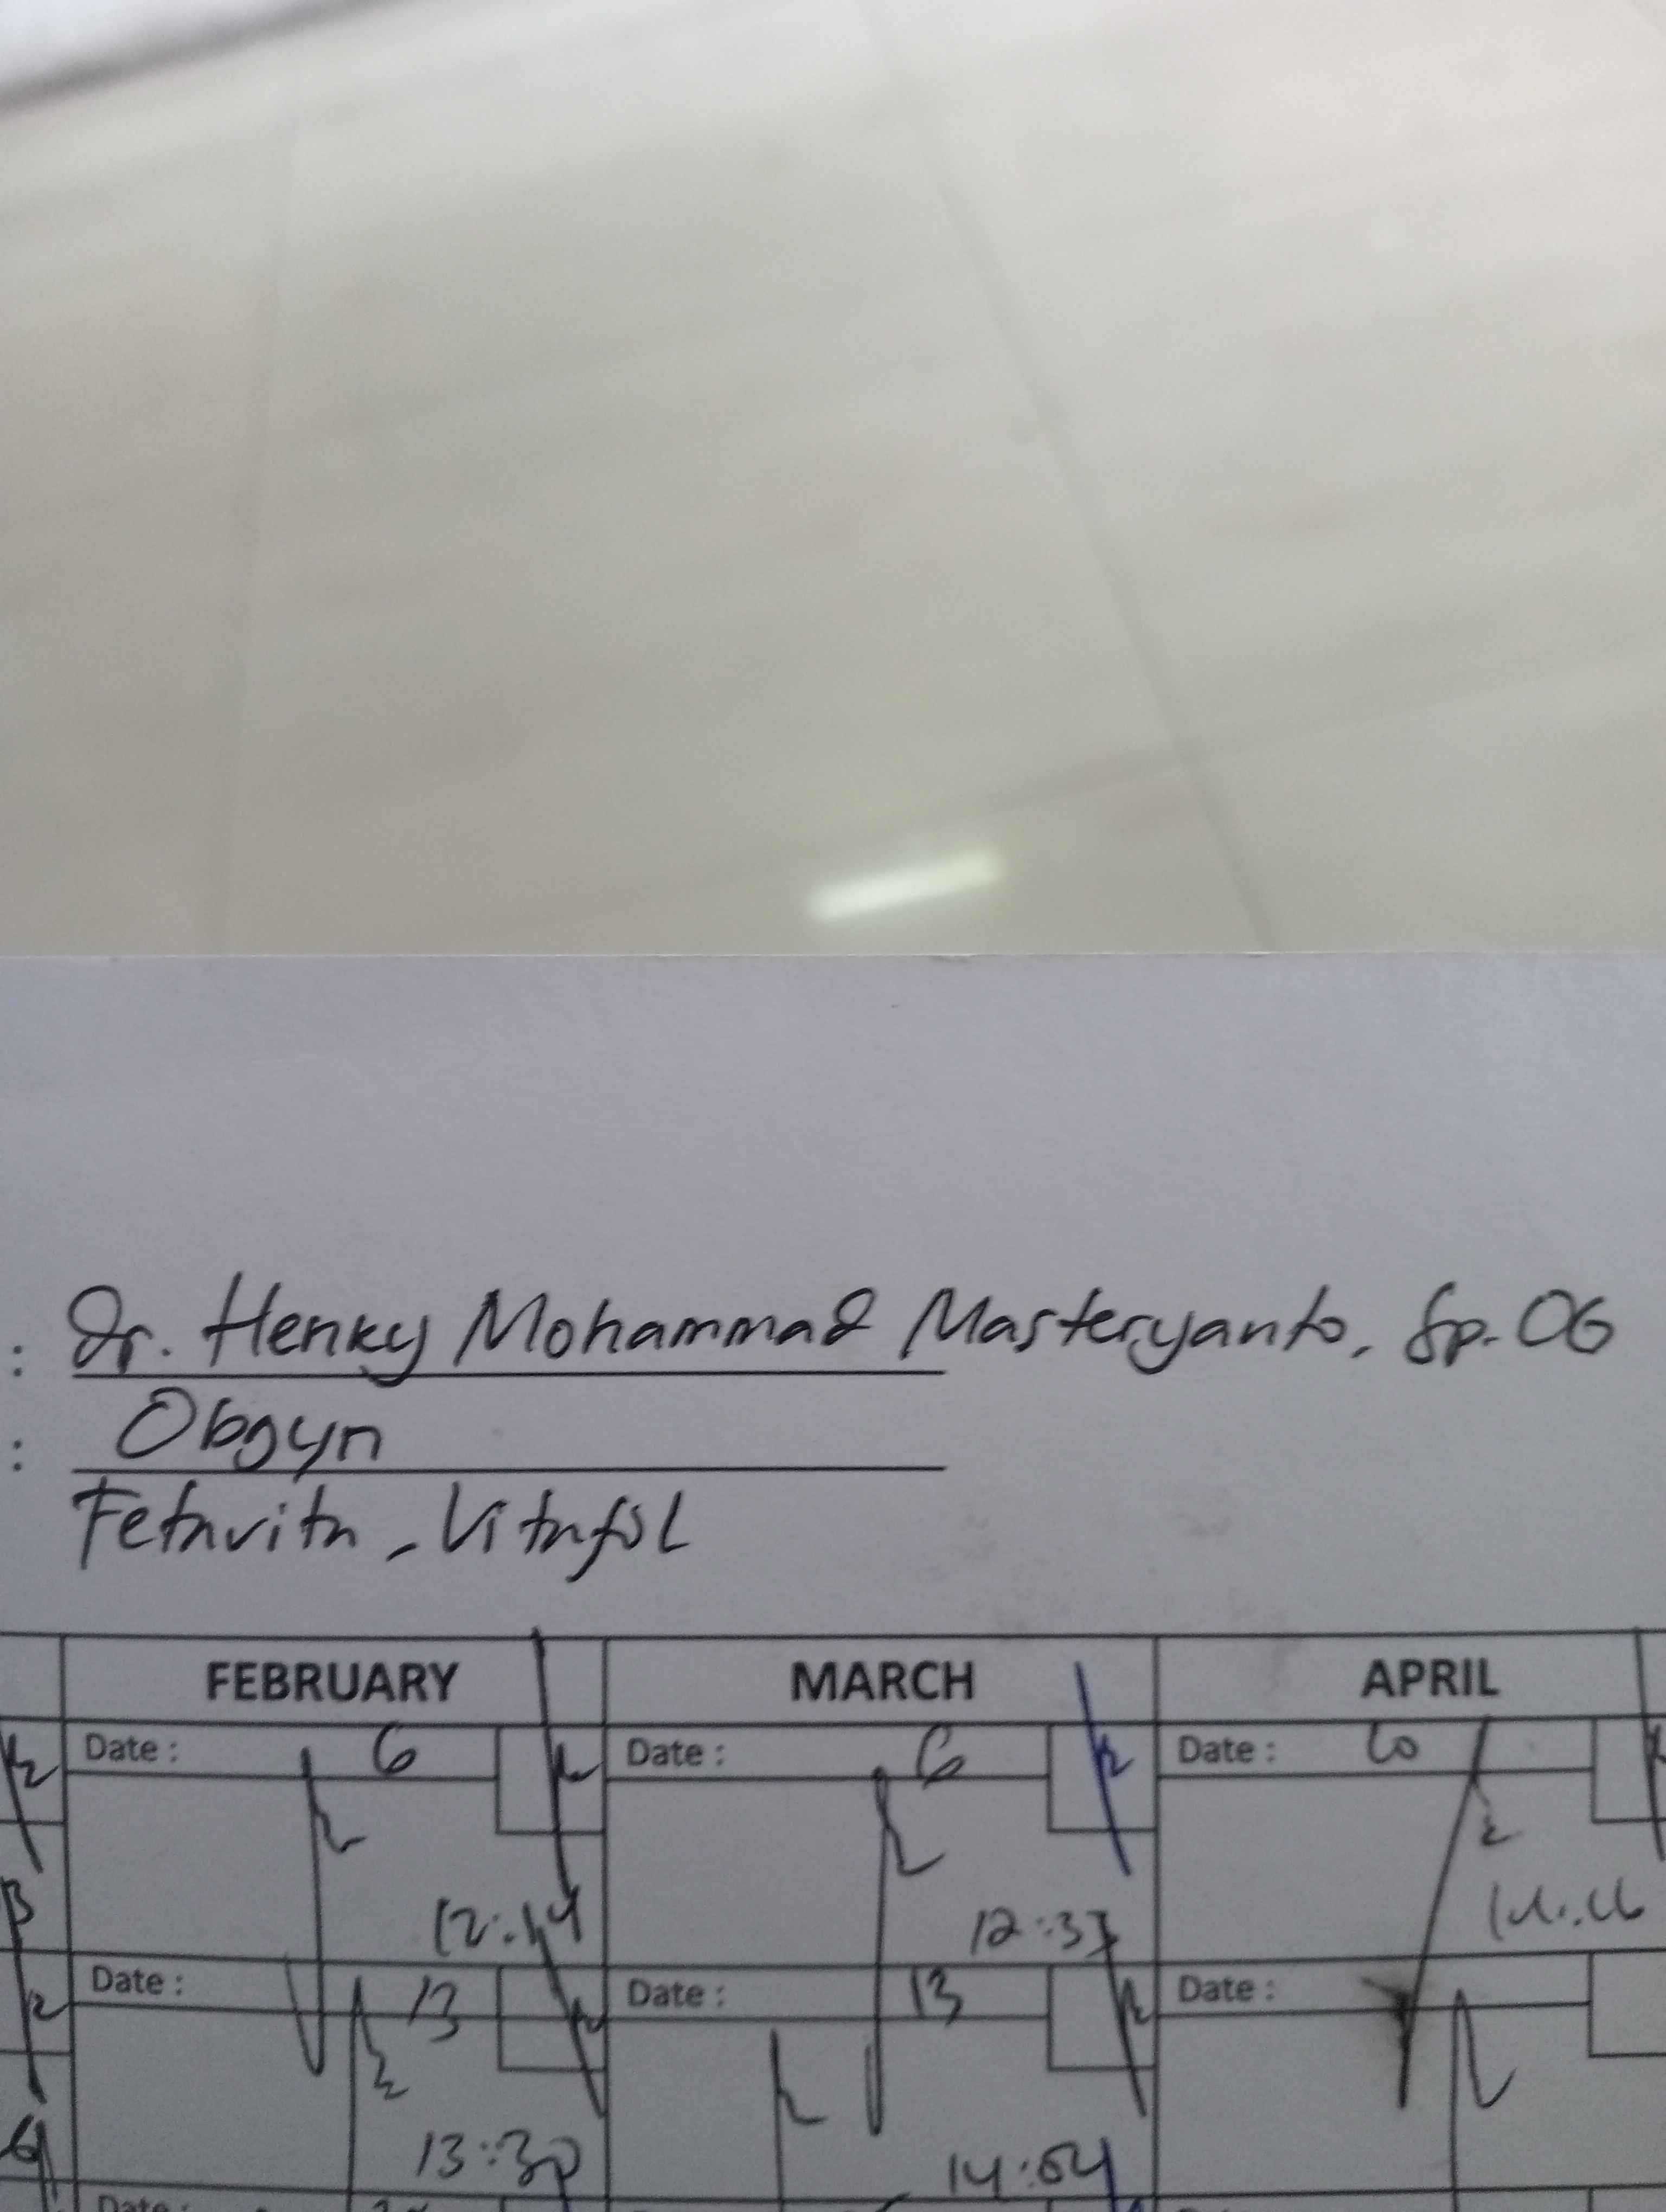 : Dr. Henky Mohammad Masteryanto, Sp.OG
: Obgyn
Fetavita, Vitafol
FEBRUARY MARCH APRIL
Date : 6 Date : 6 Date :
12:14 12:33
Date : 13 Date : 13 Date :
13:30 14:04
Date :